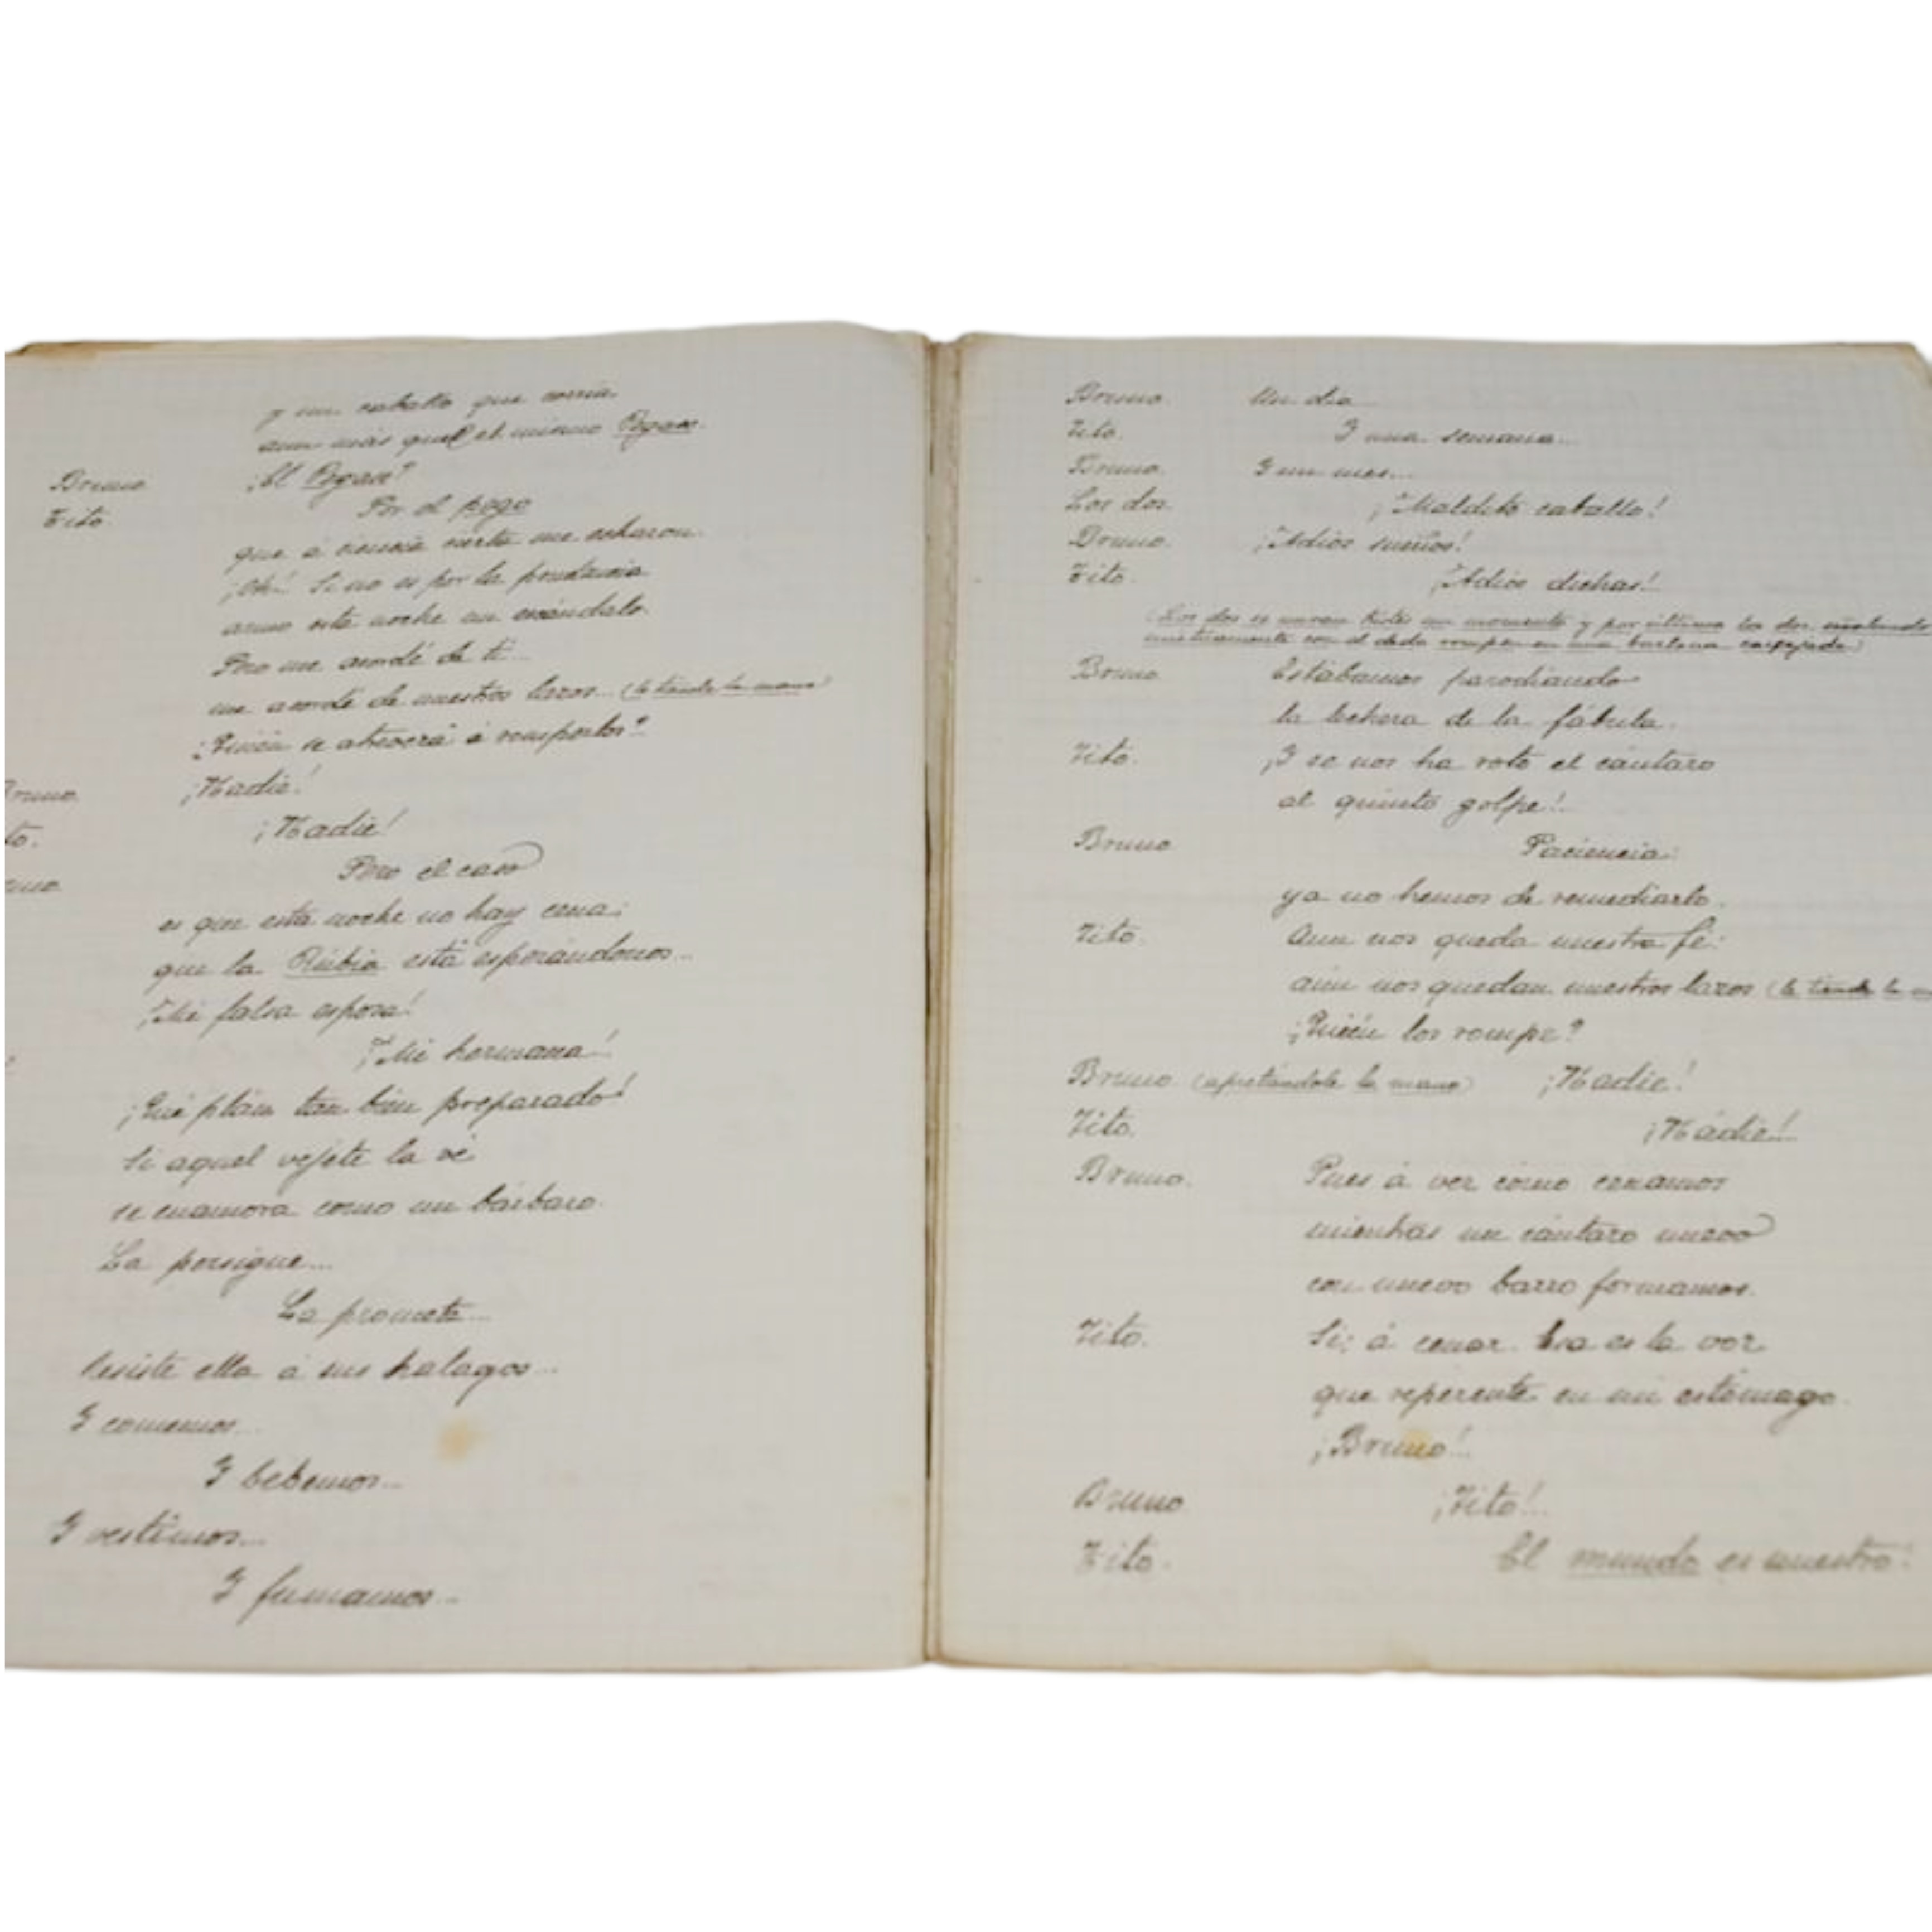 y un caballo que corría
aun más que el mismo Pegaso.
Bruno ¡El Pegaso?
Tito Por el pego
que á ciencia cierta me echaron.
¡Oh! Si no es por la prudencia
armo esta noche un escándalo.
Pero me acordé de tí...
me acordé de nuestros lazos... (le tiende la mano)
¿Quién se atreverá á romperlos?
Bruno. ¡Nadie!
to. ¡Nadie!
uno Pero el caso
es que esta noche no hay cena;
que la Rubia está esperándonos...
¡Mi falsa esposa!
¡Mi hermana!
¡Qué plan tan bien preparado!
Si aquel vejete la vé
se enamora como un bárbaro.
La persigue...
La promete...
Resiste ella á sus halagos...
Y comemos...
Y bebemos...
Y vestimos...
Y fumamos...
Bruno. Un día...
Tito. Y una semana...
Bruno. Y un mes...
Los dos. ¡Maldito caballo!
Bruno. ¡Adios sueños!
Tito. ¡Adios dichas!
(Los dos se miran tristes un momento y por último los dos
con el dedo rompen en una burlona carcajada)
Bruno Estábamos parodiando
la lechera de la fábula.
Tito. ¡Y se nos ha roto el cántaro
al quinto golpe!
Bruno Paciencia:
ya no hemos de remediarlo.
Tito. Aun nos queda nuestra fé:
aún nos quedan nuestros lazos (le tiende la
¿Quién los rompe?
Bruno (apretándole la mano) ¡Nadie!
Tito. ¡Nadie!
Bruno. Pues á ver cómo cenamos
mientras un cántaro nuevo
con nuevo barro formamos.
Tito. Si; á cenar. Esa es la voz
que repercute en mi estómago.
¡Bruno!
Bruno ¡Tito!
Tito. El mundo es nuestro!